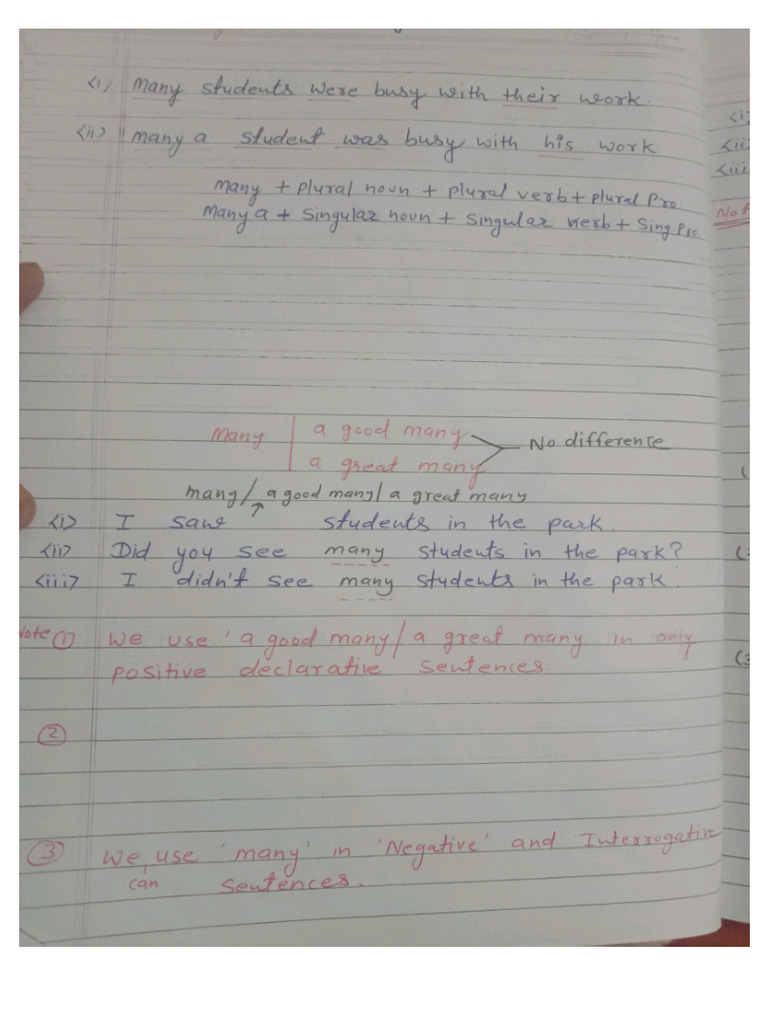 <i> Many students were busy with their work.
<ii> many a student was busy with his work
Many + plural noun + plural verb + plural Pro.
Many a + Singular noun + Singular verb + Sing. Pro.
Many | a good many
a great many
No difference
many / a good many / a great many
<i> I saw students in the park.
<ii> Did you see many students in the park?
<iii> I didn't see many students in the park.
Note ① We use 'a good many / a great many in only
positive declarative sentences.
②
③ We use 'many' in 'Negative' and Interrogative
can sentences.
<i>
<ii
<iii